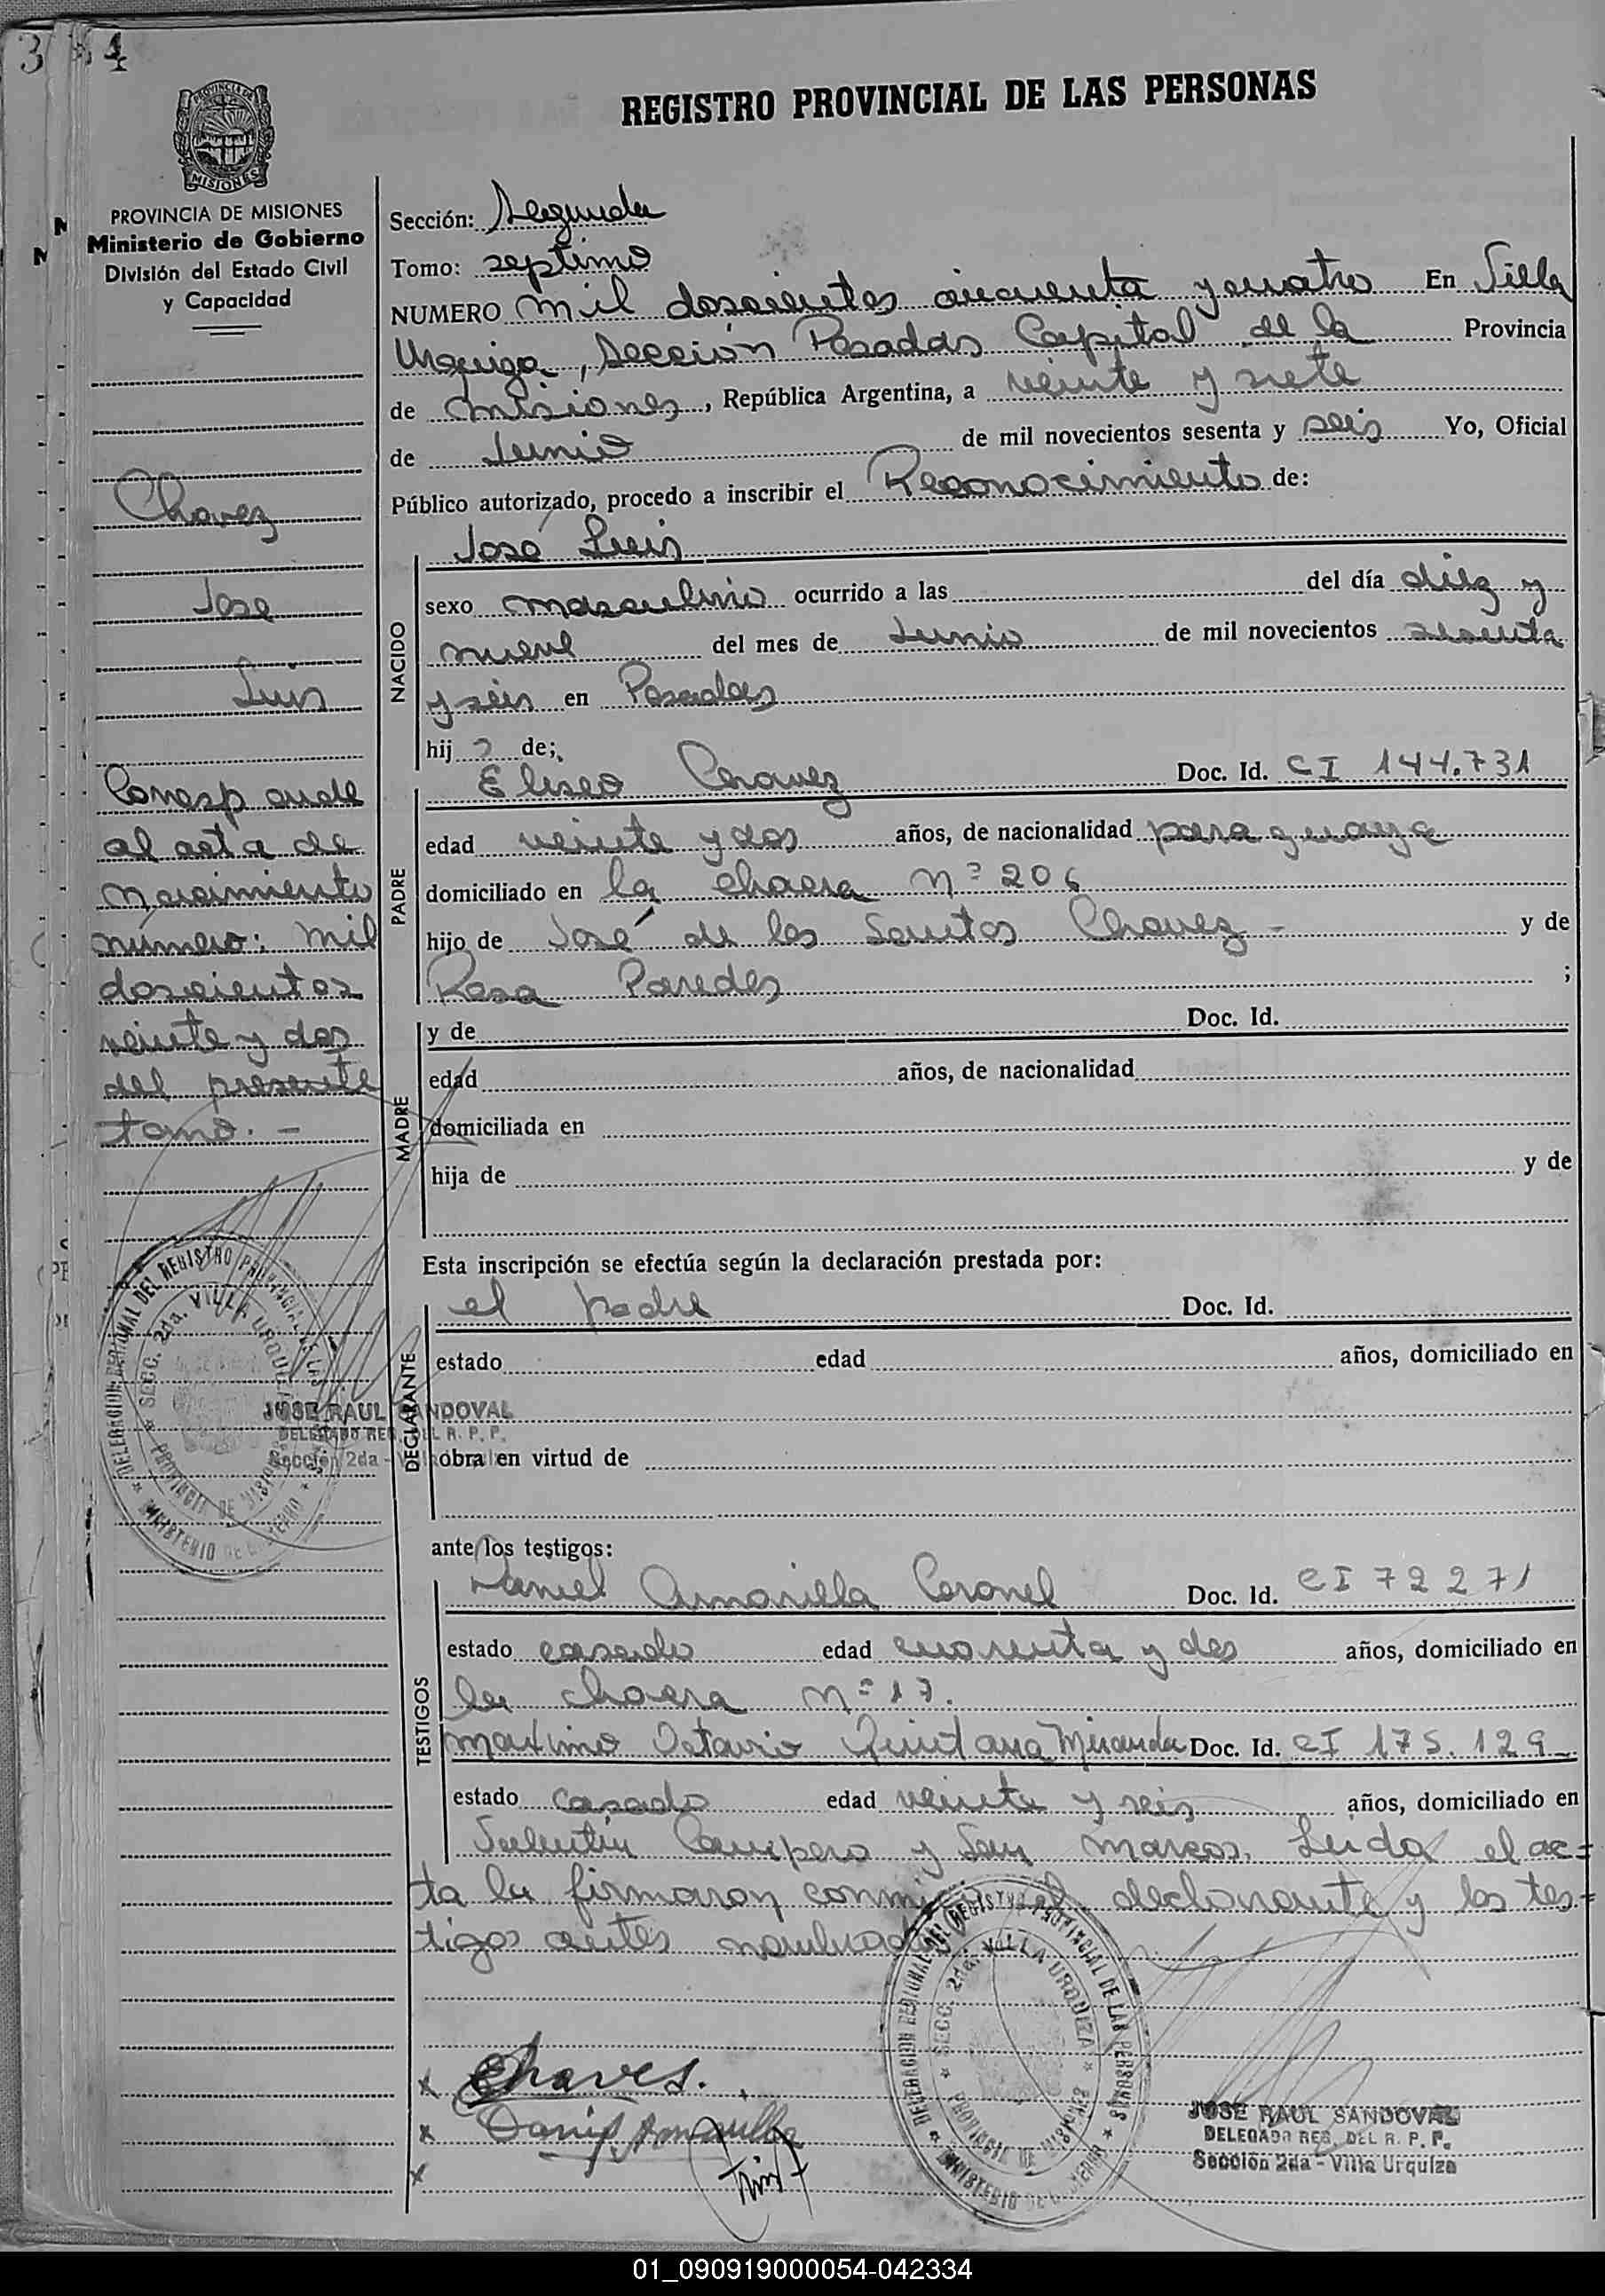 3 4
REGISTRO PROVINCIAL DE LAS PERSONAS
PROVINCIA DE MISIONES
Ministerio de Gobierno
División del Estado Civil
y Capacidad
Chavez
Jose
Luis
Corresponde
al acta de
nacimiento
número: mil
doscientos
veinte y dos
del presente
tomo. -
Sección: Segunda
Tomo: septimo
NUMERO mil doscientos cincuenta y cuatro En Villa
Urquiza, Sección Posadas Capital de la Provincia
de misiones, República Argentina, a veinte y siete
de Junio de mil novecientos sesenta y seis Yo, Oficial
Público autorizado, procedo a inscribir el Reconocimiento de:
José Luis
NACIDO
sexo masculino ocurrido a las del día diez y
nueve del mes de Junio de mil novecientos sesenta
y seis en Posadas
hij o de;
PADRE
Eliseo Chavez Doc. Id. CI 144.731
edad veinte y dos años, de nacionalidad paraguaya
domiciliado en la chacra Nº 206
hijo de José de los Santos Chavez - y de
Rosa Paredes ;
MADRE
y de Doc. Id.
edad años, de nacionalidad
domiciliada en
hija de y de
Esta inscripción se efectúa según la declaración prestada por:
DECLARANTE
el padre Doc. Id.
estado edad años, domiciliado en
obra en virtud de
DELEGACION REGIONAL DEL REGISTRO PROVINCIAL DE LAS PERSONAS
SECC. 2da. VILLA URQUIZA
PROVINCIA DE MISIONES
MINISTERIO DE GOBIERNO
JOSE RAUL SANDOVAL
DELEGADO REG. DEL R. P. P.
Sección 2da -
ante los testigos:
TESTIGOS
Daniel Amarilla Coronel Doc. Id. CI 72271
estado casado edad cuarenta y dos años, domiciliado en
la chacra Nº 17.
Maximo Octavio Quintana Miranda Doc. Id. CI 175.129
estado casado edad veinte y seis años, domiciliado en
Valentin Campero y San Marcos. Leida el ac=
ta la firmaron conmigo el declarante y los tes=
tigos antes nombrados
x Chaves.
x Daniel Amarilla
x
DELEGACION REGIONAL DEL REGISTRO PROVINCIAL DE LAS PERSONAS
SECC. 2da. VILLA URQUIZA
PROVINCIA DE MISIONES
MINISTERIO DE GOBIERNO
JOSE RAUL SANDOVAL
DELEGADO REG. DEL R. P. P.
Sección 2da - Villa Urquiza
01_090919000054-042334